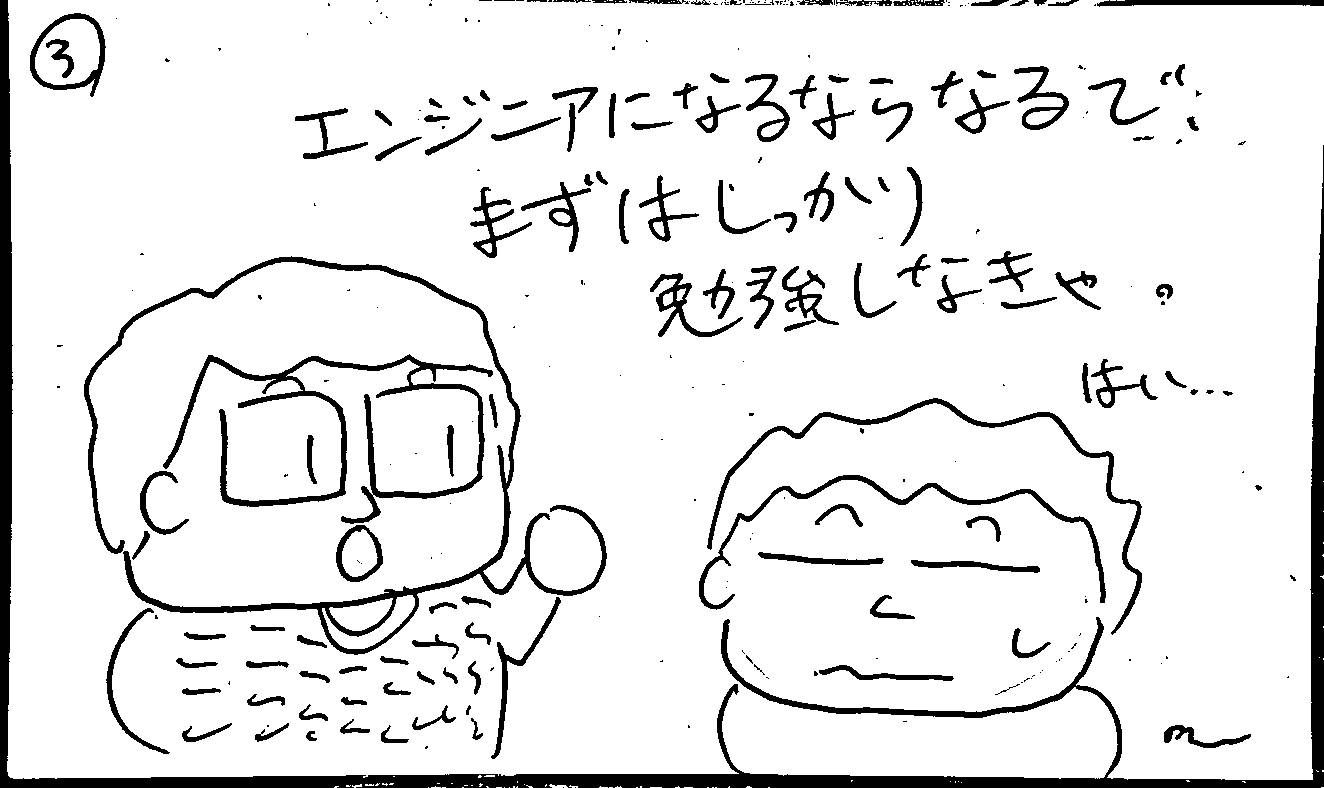 ③
エンジニアになるならなるで、
まずはしっかり
勉強しなきゃ。
はい…